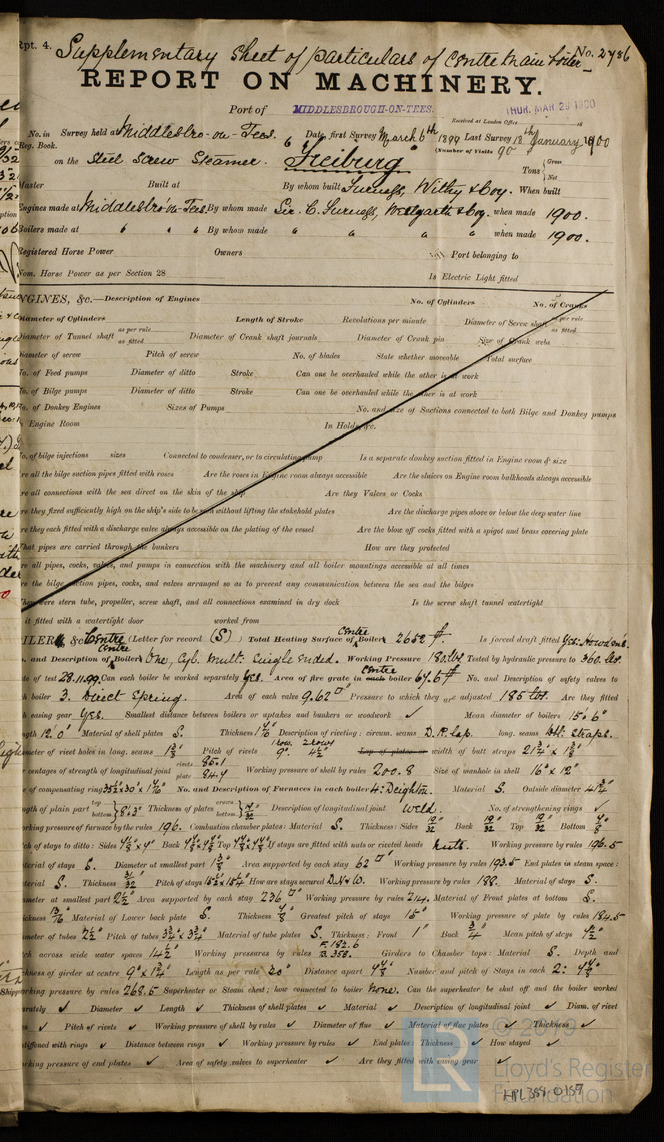 Rpt. 4.
Supplementary sheet of particulars of Centre Main boiler
No. 2786
REPORT ON MACHINERY.
Port of MIDDLESBROUGH-ON-TEES.
THUR. MAR 29 1900
Received at London Office
No. in Survey held at Middlesbro-on-Tees. Date, first Survey March 6th 1899 Last Survey 18th January 1900
Reg. Book. (Number of Visits 90)
on the Steel Screw Steamer. "Freiburg" Tons { Gross Net
Master Built at By whom built Furness, Withy & Coy. When built
Engines made at Middlesbro'-on-Tees By whom made Sir C. Furness, Westgarth & Coy. when made 1900.
Boilers made at " " " By whom made " " " " when made 1900.
Registered Horse Power Owners Port belonging to
Nom. Horse Power as per Section 28 Is Electric Light fitted
NGINES, &c.—Description of Engines No. of Cylinders No. of Cranks
Diameter of Cylinders Length of Stroke Revolutions per minute Diameter of Screw shaft as per rule as fitted
Diameter of Tunnel shaft as per rule as fitted Diameter of Crank shaft journals Diameter of Crank pin Size of Crank webs
Diameter of screw Pitch of screw No. of blades State whether moveable Total surface
No. of Feed pumps Diameter of ditto Stroke Can one be overhauled while the other is at work
No. of Bilge pumps Diameter of ditto Stroke Can one be overhauled while the other is at work
No. of Donkey Engines Sizes of Pumps No. and size of Suctions connected to both Bilge and Donkey pumps
Engine Room In Holds, &c.
No. of bilge injections sizes Connected to condenser, or to circulating pump Is a separate donkey suction fitted in Engine room & size
re all the bilge suction pipes fitted with roses Are the roses in Engine room always accessible Are the sluices on Engine room bulkheads always accessible
re all connections with the sea direct on the skin of the ship Are they Valves or Cocks
re they fixed sufficiently high on the ship's side to be seen without lifting the stokehold plates Are the discharge pipes above or below the deep water line
re they each fitted with a discharge valve always accessible on the plating of the vessel Are the blow off cocks fitted with a spigot and brass covering plate
hat pipes are carried through the bunkers How are they protected
re all pipes, cocks, valves, and pumps in connection with the machinery and all boiler mountings accessible at all times
re the bilge suction pipes, cocks, and valves arranged so as to prevent any communication between the sea and the bilges
hen were stern tube, propeller, screw shaft, and all connections examined in dry dock Is the screw shaft tunnel watertight
it fitted with a watertight door worked from
ILER, &c. Centre (Letter for record (S)) Total Heating Surface of Centre Boiler 2652 ft. Is forced draft fitted Yes: Howdens.
. and Description of Centre Boiler One, Cyl. Mult: Single ended. Working Pressure 180 lbs Tested by hydraulic pressure to 360 lbs.
te of test 28.11.99 Can each boiler be worked separately Yes. Area of fire grate in Centre boiler 67.5 ft No. and Description of safety valves to
h boiler 3. Direct Spring. Area of each valve 9.62 □" Pressure to which they are adjusted 185 lbs. Are they fitted
h easing gear Yes. Smallest distance between boilers or uptakes and bunkers or woodwork ✓ Mean diameter of boilers 15'.6"
ngth 12'.0" Material of shell plates S. Thickness 1 7/16 Description of riveting: circum. seams D.R. lap. long. seams Dbl. Straps.
meter of rivet holes in long. seams 1 3/8 Pitch of rivets 1 row 9". 2 rows 4 1/2" Lap of plates or width of butt straps 21 3/4" x 1 3/8"
centages of strength of longitudinal joint rivets 85.1 plate 84.4 Working pressure of shell by rules 200.8 Size of manhole in shell 16" x 12"
e of compensating ring No. and Description of Furnaces in each boiler 4: Deighton. Material S. Outside diameter
gth of plain part top bottom } 8'.3" Thickness of plates crown bottom } Description of longitudinal joint Weld. No. of strengthening rings ✓
rking pressure of furnace by the rules 196. Combustion chamber plates: Material S. Thickness: Sides 19/32 Back 19/32 Top 19/32 Bottom
ch of stays to ditto: Sides Back Top If stays are fitted with nuts or riveted heads nuts. Working pressure by rules 196.5
terial of stays S. Diameter at smallest part 1 3/8" Area supported by each stay 62 □" Working pressure by rules 193.5 End plates in steam space:
terial S. Thickness 31/32 Pitch of stays How are stays secured D.N & W. Working pressure by rules 188. Material of stays S.
ameter at smallest part Area supported by each stay 236 □" Working pressure by rules 214. Material of Front plates at bottom S.
ickness 13/16 Material of Lower back plate S. Thickness Greatest pitch of stays 15" Working pressure of plate by rules 184.5
meter of tubes 2 1/2" Pitch of tubes 3 3/4" x 3 3/4" Material of tube plates S. Thickness: Front 1" Back 3/4" Mean pitch of stays
ch across wide water spaces 14 1/2" Working pressures by rules F. 182.6 B. 358. Girders to Chamber tops: Material S. Depth and
kness of girder at centre 9" x 1 3/4" Length as per rule 20" Distance apart Number and pitch of Stays in each 2:
rking pressure by rules 268.5 Superheater or Steam chest; how connected to boiler None. Can the superheater be shut off and the boiler worked
arately ✓ Diameter ✓ Length ✓ Thickness of shell plates ✓ Material ✓ Description of longitudinal joint ✓ Diam. of rivet
es ✓ Pitch of rivets ✓ Working pressure of shell by rules ✓ Diameter of flue ✓ Material of flue plates ✓ Thickness ✓
stiffened with rings ✓ Distance between rings ✓ Working pressure by rules ✓ End plates: Thickness ✓ How stayed ✓
rking pressure of end plates ✓ Area of safety valves to superheater ✓ Are they fitted with easing gear ✓
LR
Lloyd's Register
Foundation